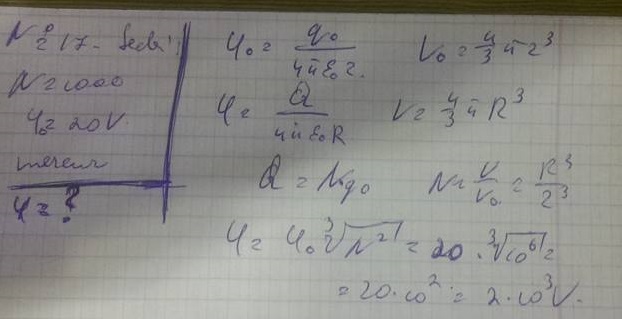 № 17.
N = 1000
φ₀ = 20V
φ = ?
φ₀ = q₀ / 4πε₀r. V₀ = 4/3 πr³
φ = Q / 4πε₀R V = 4/3 πR³
Q = Nq₀ N = V/V₀ = R³/r³
φ = φ₀ ³√N² = 20 · ³√10⁶ =
= 20·10² = 2·10³V.